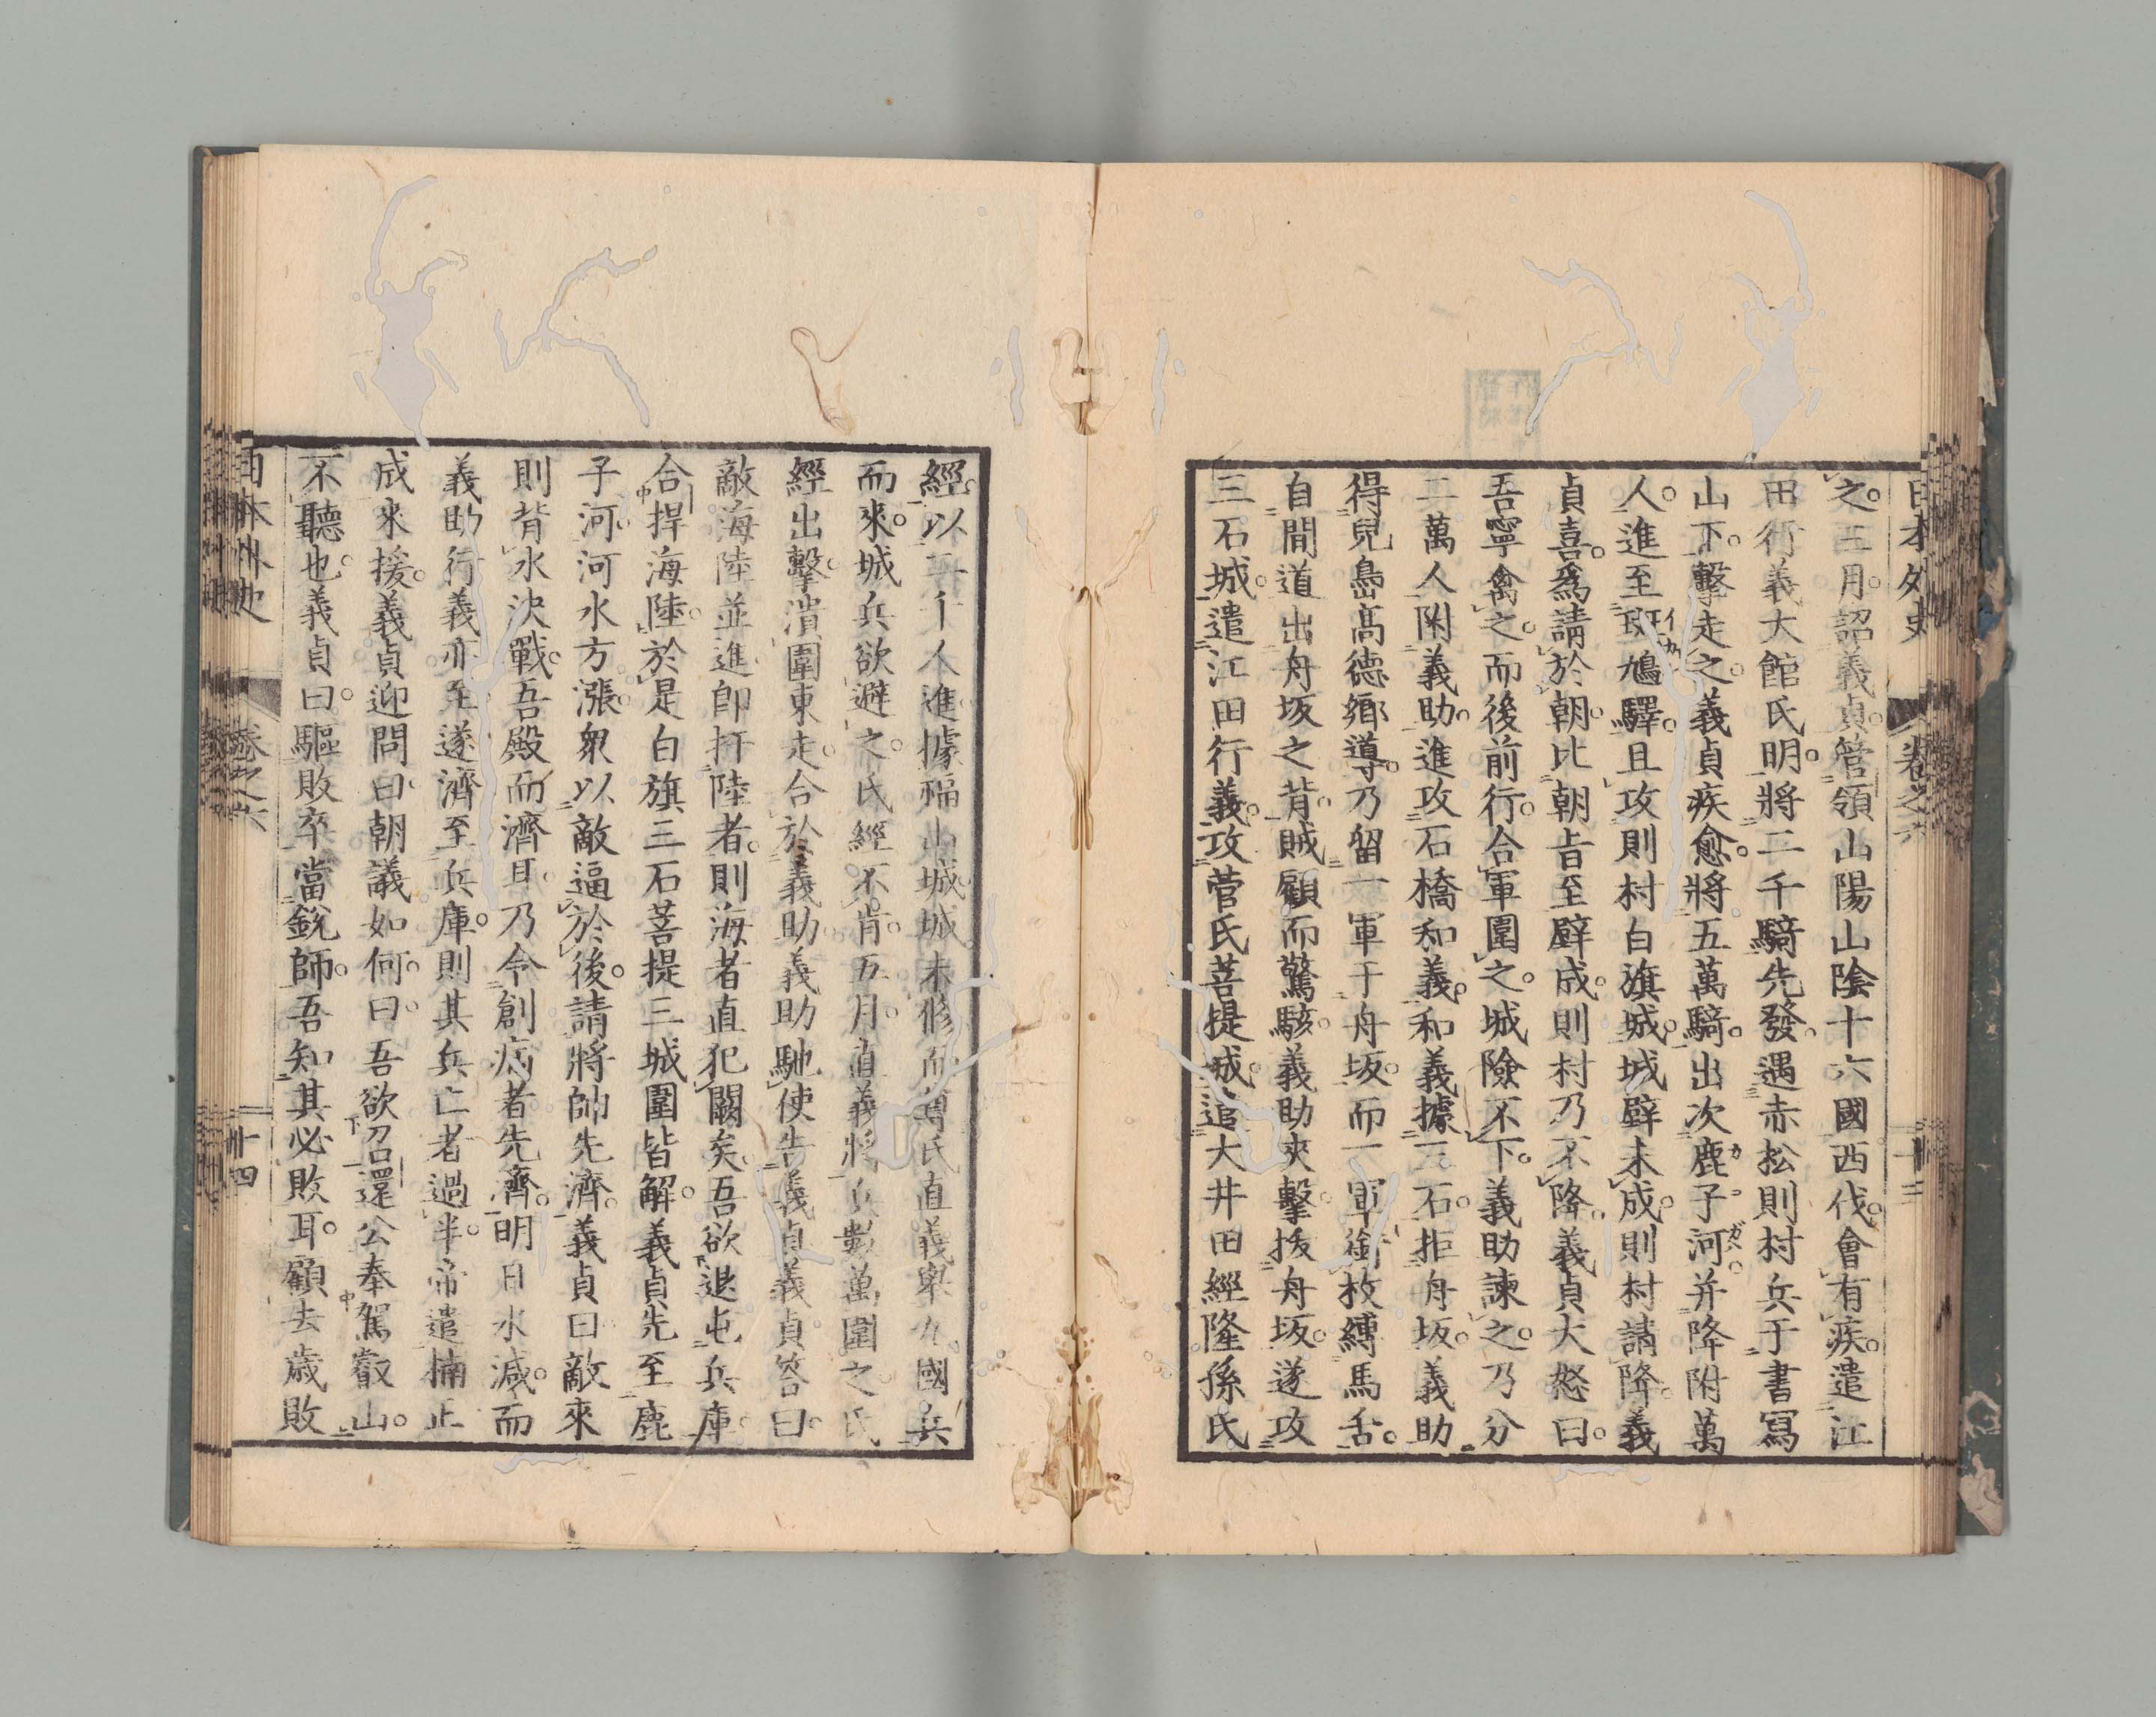 日本外史 卷之六 十三
之。三月。詔義貞。管領山陽山陰十六國西伐。會有疾。遣江
田行義大館氏明。將二千騎先發。遇赤松則村兵于書寫
山下。擊走之。義貞疾愈。將五萬騎。出次鹿子河。并降附萬
人。進至斑鳩驛。且攻則村白旗城。城壁未成。則村請降。義
貞喜。爲請於朝。比朝旨至壁成。則村乃不降。義貞大怒曰。
吾寧禽之。而後前行。合軍圍之。城險不下。義助諫之。乃分
二萬人附義助。進攻石橋和義。和義據三石。拒舟坂。義助
得兒島高德鄉導。乃留一軍于舟坂。而一軍銜枚縛馬舌。
自間道出舟坂之背。賊顧而驚駭。義助夾擊拔舟坂。遂攻
三石城。遣江田行義。攻菅氏菩提城。追大井田經隆孫氏
經。以二千人進據福山城。城未修而尊氏直義舉九國兵
而來。城兵欲避之。氏經不肯。五月。直義將兵數萬圍之。氏
經出擊。潰圍東走。合於義助。義助馳使告義貞。義貞答曰。
敵海陸並進。卽扞陸者。則海者直犯闕矣。吾欲退屯兵庫。
合捍海陸。於是白旗三石菩提三城圍皆解。義貞先至鹿
子河。河水方漲。衆以敵逼於後。請將帥先濟。義貞曰敵來
則背水決戰。吾殿而濟耳。乃令創病者先濟。明日水減。而
義助行義亦至。遂濟至兵庫。則其兵亡者過半。帝遣楠正
成來援。義貞迎問曰。朝議如何。曰。吾欲召還公奉駕叡山。
不聽也。義貞曰。驅敗卒當銳師。吾知其必敗耳。顧去歲敗
日本外史 卷之六 十四